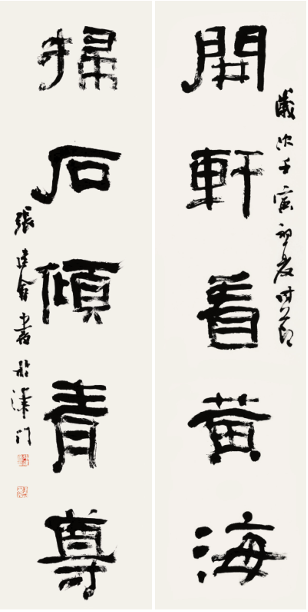 開軒看黄海
歲次壬寅初夏時節
掃石傾青尊
張建會書於津門